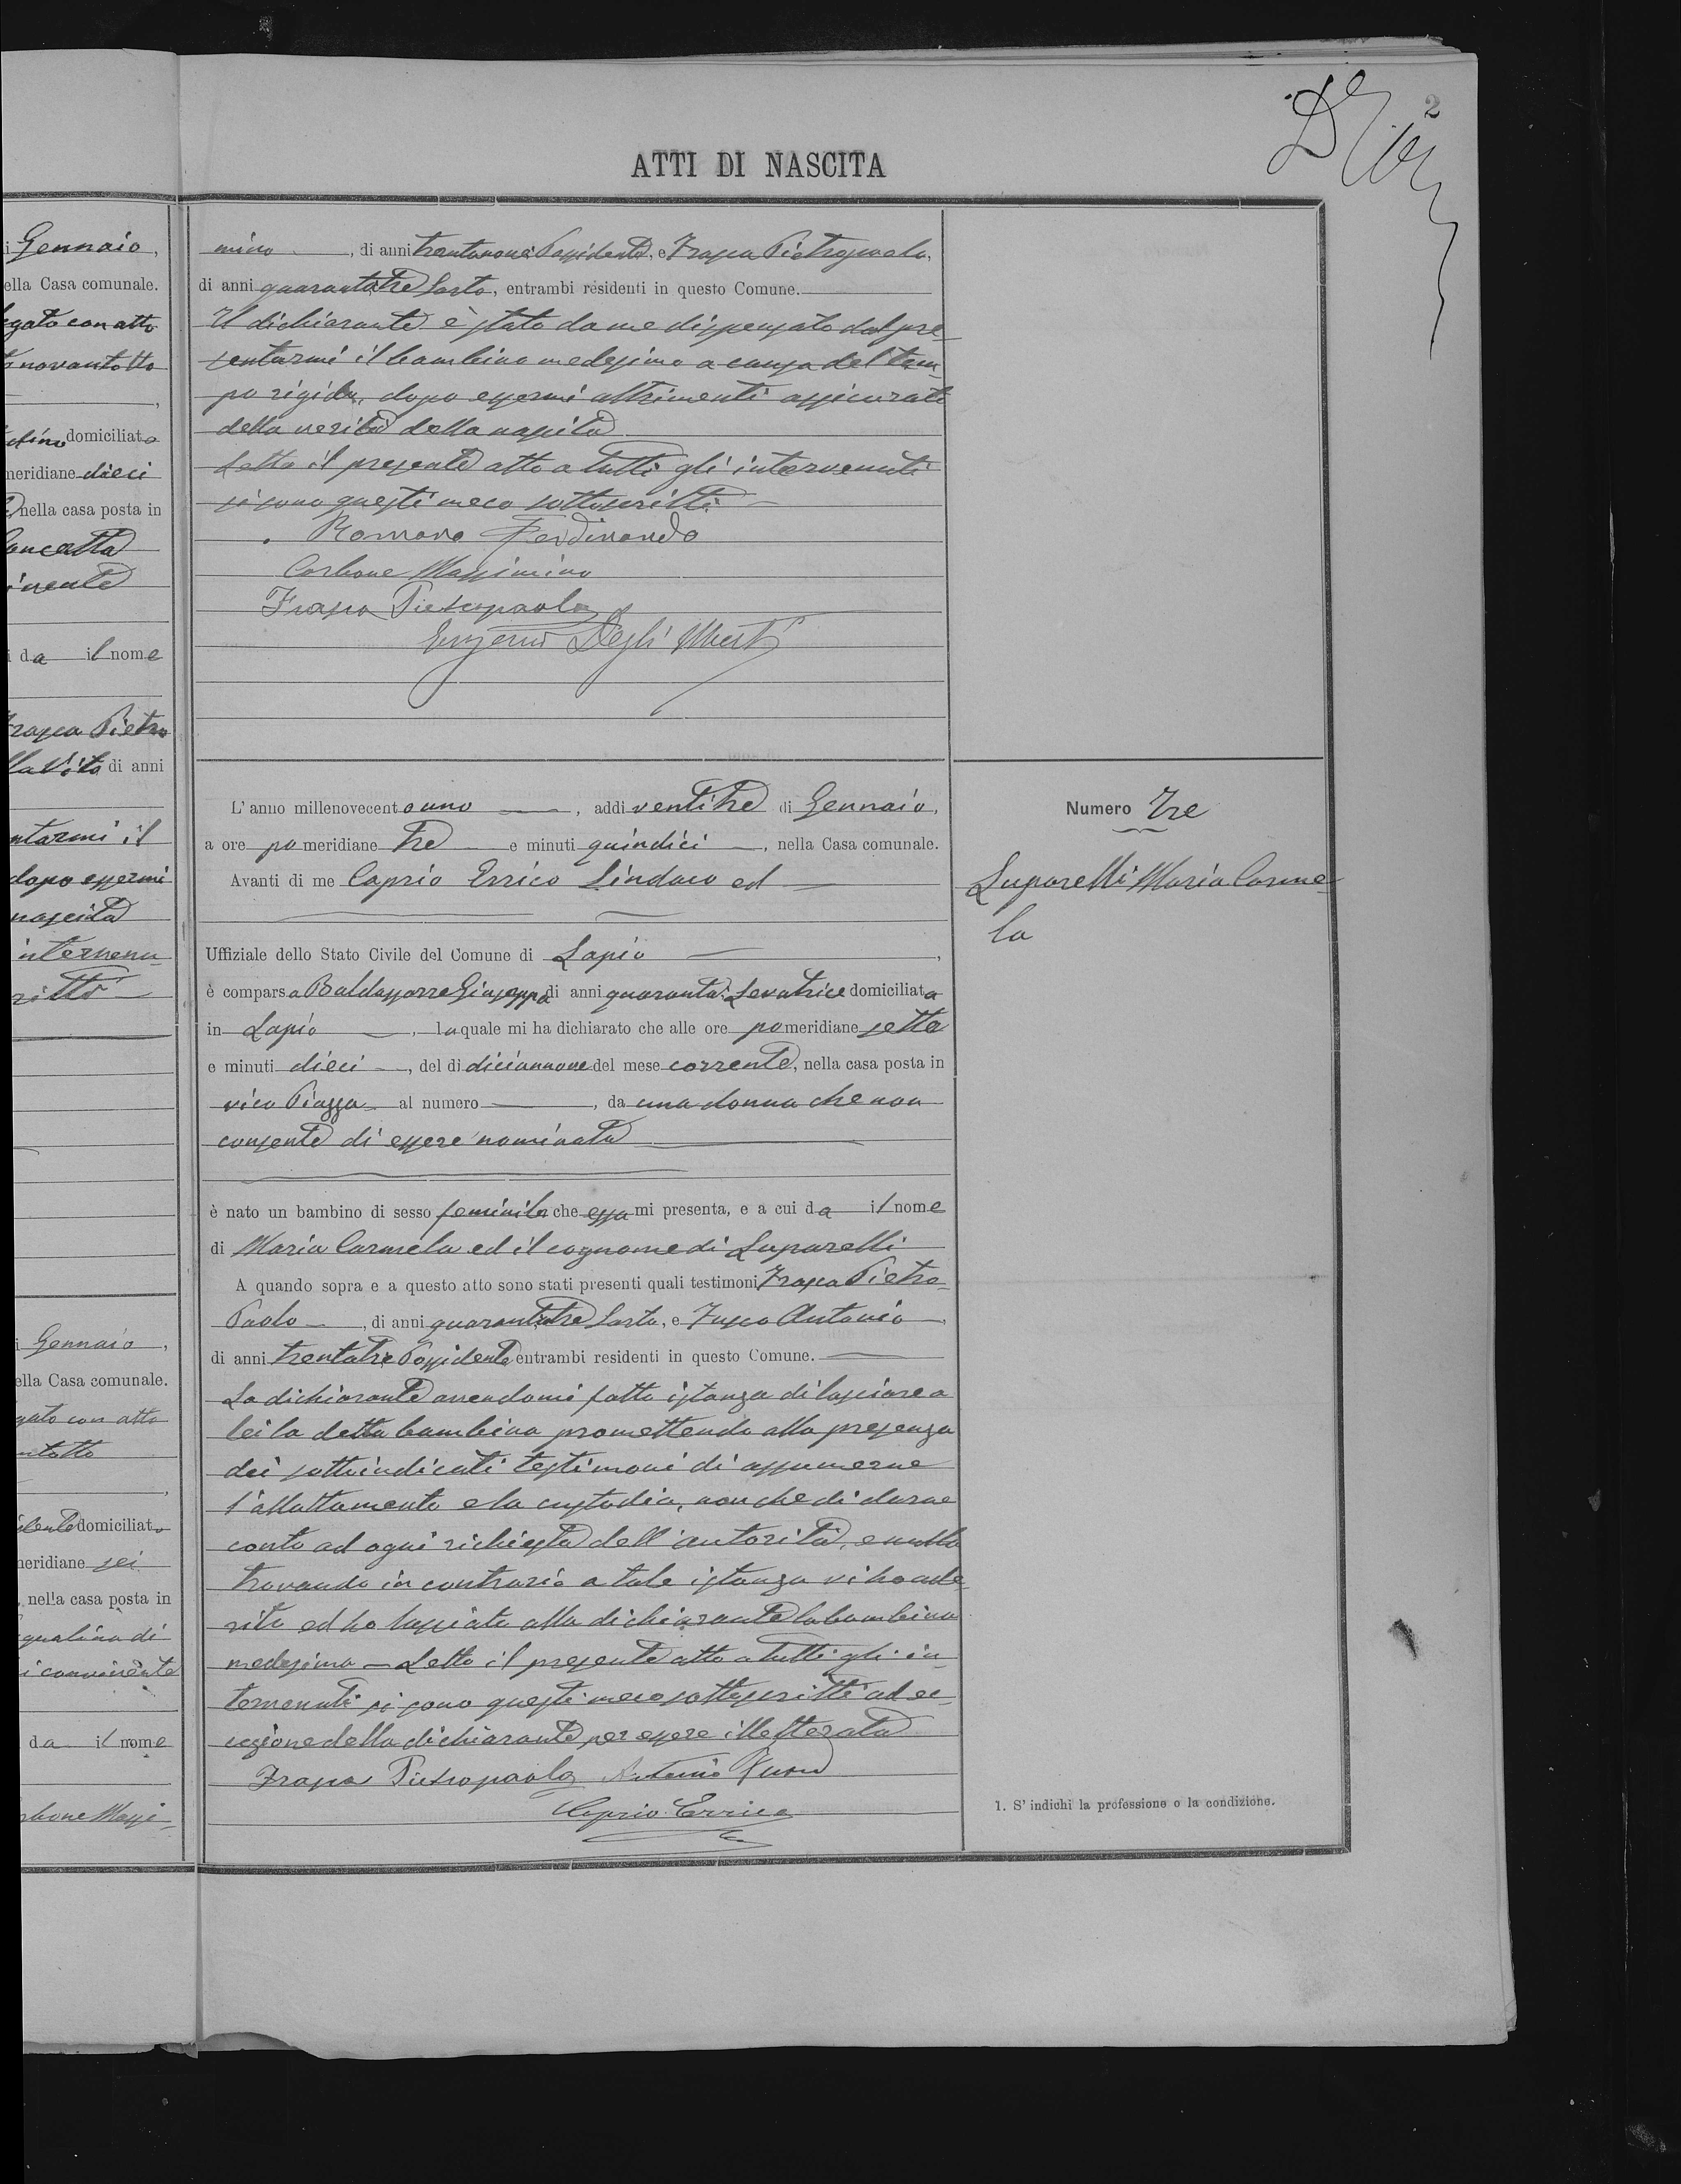 2
ATTI DI NASCITA
i Gennaio,
ella Casa comunale.
egato con atto
novantotto
domiciliato
meridiane dieci
nella casa posta in
Concetta
inente
i da il nome
Frasca Pietro
lla Vita di anni
ntarmi il
dopo essermi
nascita
intervenu
ritto
i Gennaio,
ella Casa comunale.
gato con atto
ntotto
idente domiciliato
meridiane sei
, nella casa posta in
qualina di
i convivente
da il nome
rbone Massi-
mino, di anni trentanove Possidente, e Frasca Pietropaolo,
di anni quarantatre Sarto, entrambi residenti in questo Comune.
Il dichiarante è stato da me dispensato dal pre-
sentarmi il bambino medesimo a causa del tem-
po rigido, dopo essermi altrimenti assicurato
della verità della nascita
Letto il presente atto a tutti gli intervenuti
si sono questi meco sottoscritti
Romano Ferdinando
Carbone Massimino
Frasca Pietropaolo
Eugenio Degli Uberti
L'anno millenovecentouno, addi ventitre di Gennaio,
a ore pomeridiane tre e minuti quindici, nella Casa comunale.
Avanti di me Caprio Errico Sindaco ed
Uffiziale dello Stato Civile del Comune di Lapio,
è comparsa Baldassarre Giuseppa di anni quaranta, Levatrice domiciliata
in Lapio, la quale mi ha dichiarato che alle ore pomeridiane sette
e minuti dieci, del dì diciannove del mese corrente, nella casa posta in
vico Piazza al numero, da una donna che non
consente di essere nominata
è nato un bambino di sesso feminile che essa mi presenta, e a cui da il nome
di Maria Carmela ed il cognome di Luparelli
A quando sopra e a questo atto sono stati presenti quali testimoni Frasca Pietro
Paolo, di anni quarantatre Sarto, e Fusco Antonio,
di anni trentatre Possidente entrambi residenti in questo Comune.
La dichiarante avendomi fatto istanza di lasciare a
lei la detta bambina promettendo alla presenza
dei sottoindicati testimoni di assumerne
l'allattamento e la custodia, non che di darne
conto ad ogni richiesta dell'autorità, e nulla
trovando in contrario a tale istanza vi ho ade-
rito ed ho lasciato alla dichiarante la bambina
medesima — Letto il presente atto a tutti gli in-
tervenuti si sono questi meco sottoscritti ad ec-
cezione della dichiarante per essere illetterata
Frasca Pietropaolo Antonio Fusco
Caprio Errico
Numero Tre
Luparelli Maria Carme-
la
1. S' indichi la professione o la condizione.